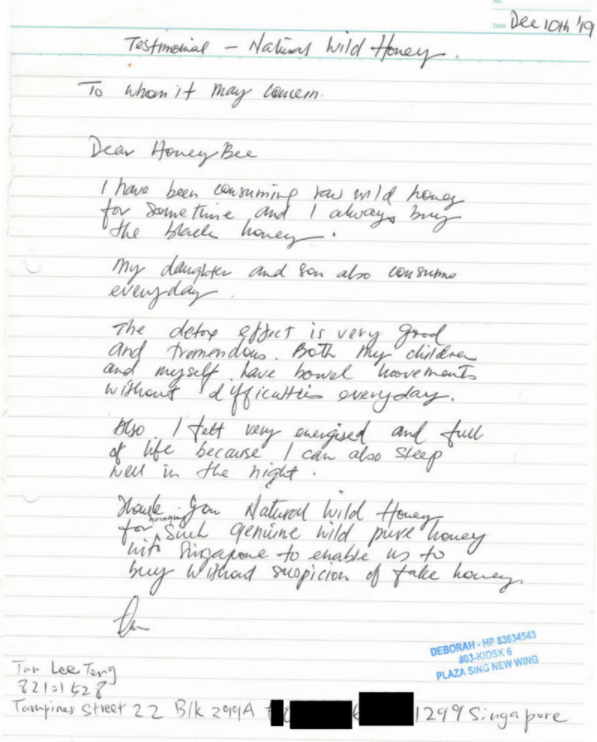 No.
Date Dec 10th '19
Testimonial - Natural Wild Honey.
To whom it may concern.
Dear Honey Bee
I have been consuming raw wild honey
for sometime and I always buy
the black honey.
My daughter and son also consume
everyday.
The detox effect is very good
and tremendous. Both my children
and myself have bowel movements
without difficulties everyday.
Also I felt very energised and full
of life because I can also sleep
well in the night.
Thank you Natural Wild Honey
for bringing such genuine wild pure honey
into Singapore to enable us to
buy without suspicion of fake honey.
DEBORAH - HP 83634543
#03-KIOSK 6
PLAZA SING NEW WING
Tan Lee Teng
Tampines Street 22 Blk 299A
1299 Singapore